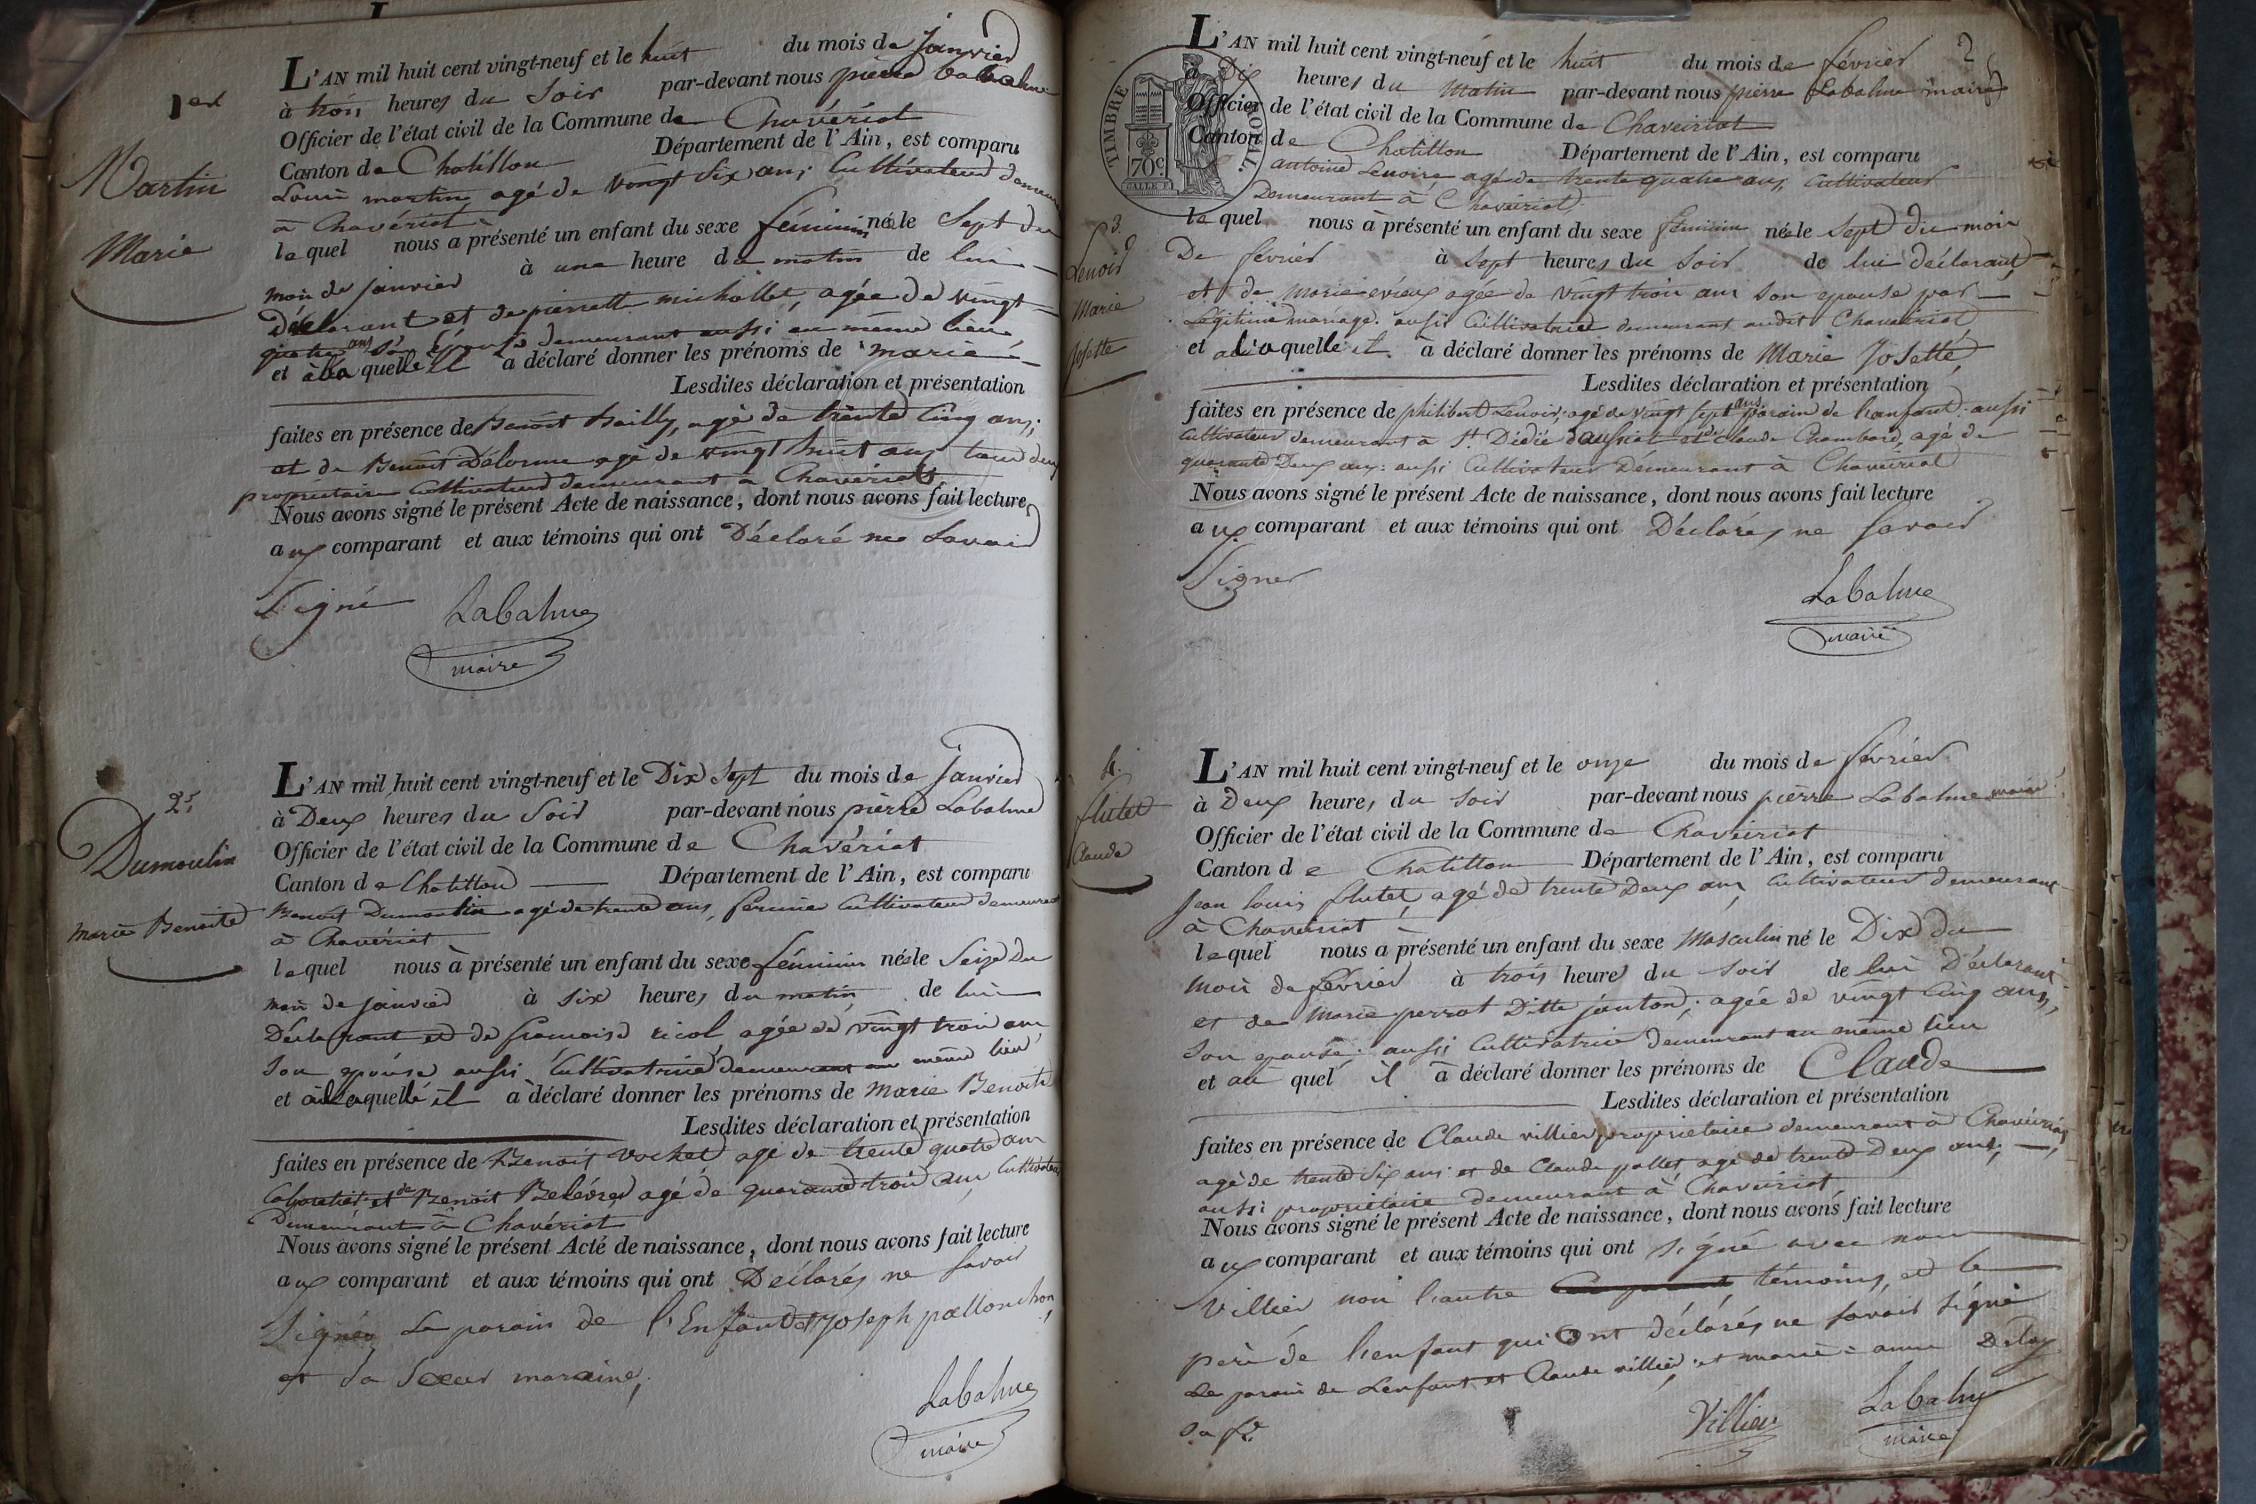 1er
Martin
Marie
L'AN mil huit cent vingt-neuf et le huit du mois de Janvier
à trois heures du Soir par-devant nous pierre Labalme
Officier de l'état civil de la Commune de Chavériat
Canton de Chatillon Département de l'Ain, est comparu
Louis martin agé de vingt six ans, Cultivateur demeurant
à Chavériat
lequel nous a présenté un enfant du sexe féminin née le Sept du
mois de janvier à une heure du matin de lui
Déclarant et de pierrette michollet, agée de vingt
quatre ans son épouse demeurant aussi au même lieu
et à laquelle il a déclaré donner les prénoms de marie
Lesdites déclaration et présentation
faites en présence de Benoit Bailly, agé de trente Cinq ans;
et de Benoit Délorme agé de vingt huit ans tous deux
propriétaire Cultivateur demeurant a Chavériat
Nous avons signé le présent Acte de naissance, dont nous avons fait lecture
aux comparant et aux témoins qui ont Déclaré ne Savoir
Signé
Labalme
maire
2e
Dumoulin
marie Benoite
L'AN mil huit cent vingt-neuf et le Dix Sept du mois de janvier
à Deux heures du Soir par-devant nous pierre Labalme
Officier de l'état civil de la Commune de Chavériat
Canton de Chatillon Département de l'Ain, est comparu
Benoit Dumoulin agé de trente ans, fermier Cultivateur demeurant
à Chavériat
lequel nous à présenté un enfant du sexe féminin née le Seize Du
mois de janvier à Six heures du matin de lui
Déclarant et de francoise ricol agée de vingt trois ans
Son epouse aussi Cultivatrice demeurant au même lieu
et à laquelle il a déclaré donner les prénoms de marie Benoite
Lesdites déclaration et présentation
faites en présence de Benoit vochet agé de trente quatre ans
et de Benoit agé de quarante trois ans Cultivateur
Demeurant à Chavériat
Nous avons signé le présent Acte de naissance, dont nous avons fait lecture
aux comparant et aux témoins qui ont Déclarés ne savoir
Signés Le parain de l'Enfant et joseph pallonchon
et Sa Soeur maraine,
Labalme
maire
2
TIMBRE ROYAL
70c
L'AN mil huit cent vingt-neuf et le huit du mois de février
à Dix heures du Matin par-devant nous pierre Labalme maire
Officier de l'état civil de la Commune de Chaveiriat
Canton de Chatillon Département de l'Ain, est comparu
antoine Lenoire agé de trente quatre ans, Cultivateur
Demeurant à Chaveiriat
3.
Lenoir
Marie
Josette
lequel nous a présenté un enfant du sexe féminin née le Sept du mois
De février à Sept heures du Soir de lui déclarant
et de Marie agée de vingt trois ans Son epouse par
Légitime mariage. aussi Cultivatrice demeurant audit Chaveiriat
et à laquelle il à déclaré donner les prénoms de Marie Josette,
Lesdites déclaration et présentation
faites en présence de philibert Lenoir, agé de vingt sept ans parain de l'anfant: aussi
Cultivateur demeurant a St Didié d'aussiat et de Claude Chambard, agé de
quarante Deux ans: aussi Cultivateur Demeurant à Chaveiriat
Nous avons signé le présent Acte de naissance, dont nous avons fait lecture
aux comparant et aux témoins qui ont Déclarés ne savoir
Signer
Labalme
maire
4.
flutet
Claude
L'AN mil huit cent vingt-neuf et le onze du mois de février
à Deux heures du Soir par-devant nous pierre Labalme maire
Officier de l'état civil de la Commune de Chaveiriat
Canton de Chatillon Département de l'Ain, est comparu
Jean louis flutet, agé de trente Deux ans, Cultivateur demeurant
à Chaveiriat
lequel nous a présenté un enfant du sexe Masculin né le Dix du
Mois de février à trois heure du Soir de lui Déclarant
et de Marie perrot Ditte janton; agée de vingt Cinq ans,
Son epouse. aussi Cultivatrice demeurant au même lieu
et au quel il à déclaré donner les prénoms de Claude
Lesdites déclaration et présentation
faites en présence de Claude villier propriétaire demeurant à Chaveiriat,
agé de trente Six ans et de Claude pallet agé de trente Deux ans;
aussi propriétaire demeurant à Chaveiriat
Nous avons signé le présent Acte de naissance, dont nous avons fait lecture
aux comparant et aux témoins qui ont Signé avec nous
Villier non l'autre témoins, et le
père de l'enfant qui ont déclarés ne savoir Signé
Le parain de Lenfant et Claude villier. et marie anne
Sa
Villier
Labalme
maire